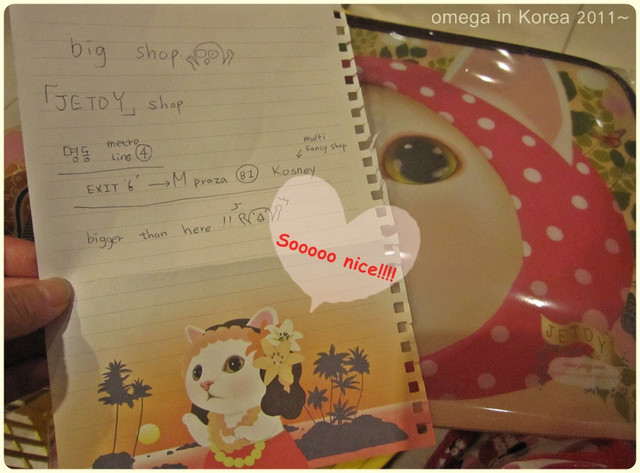 omega in Korea 2011~
big shop
「JETOY」 shop
명동 metro line ④
multi fancy shop
EXIT "6" → M praza B1 Kosney
bigger than here !!
Sooooo nice!!!!
JETOY